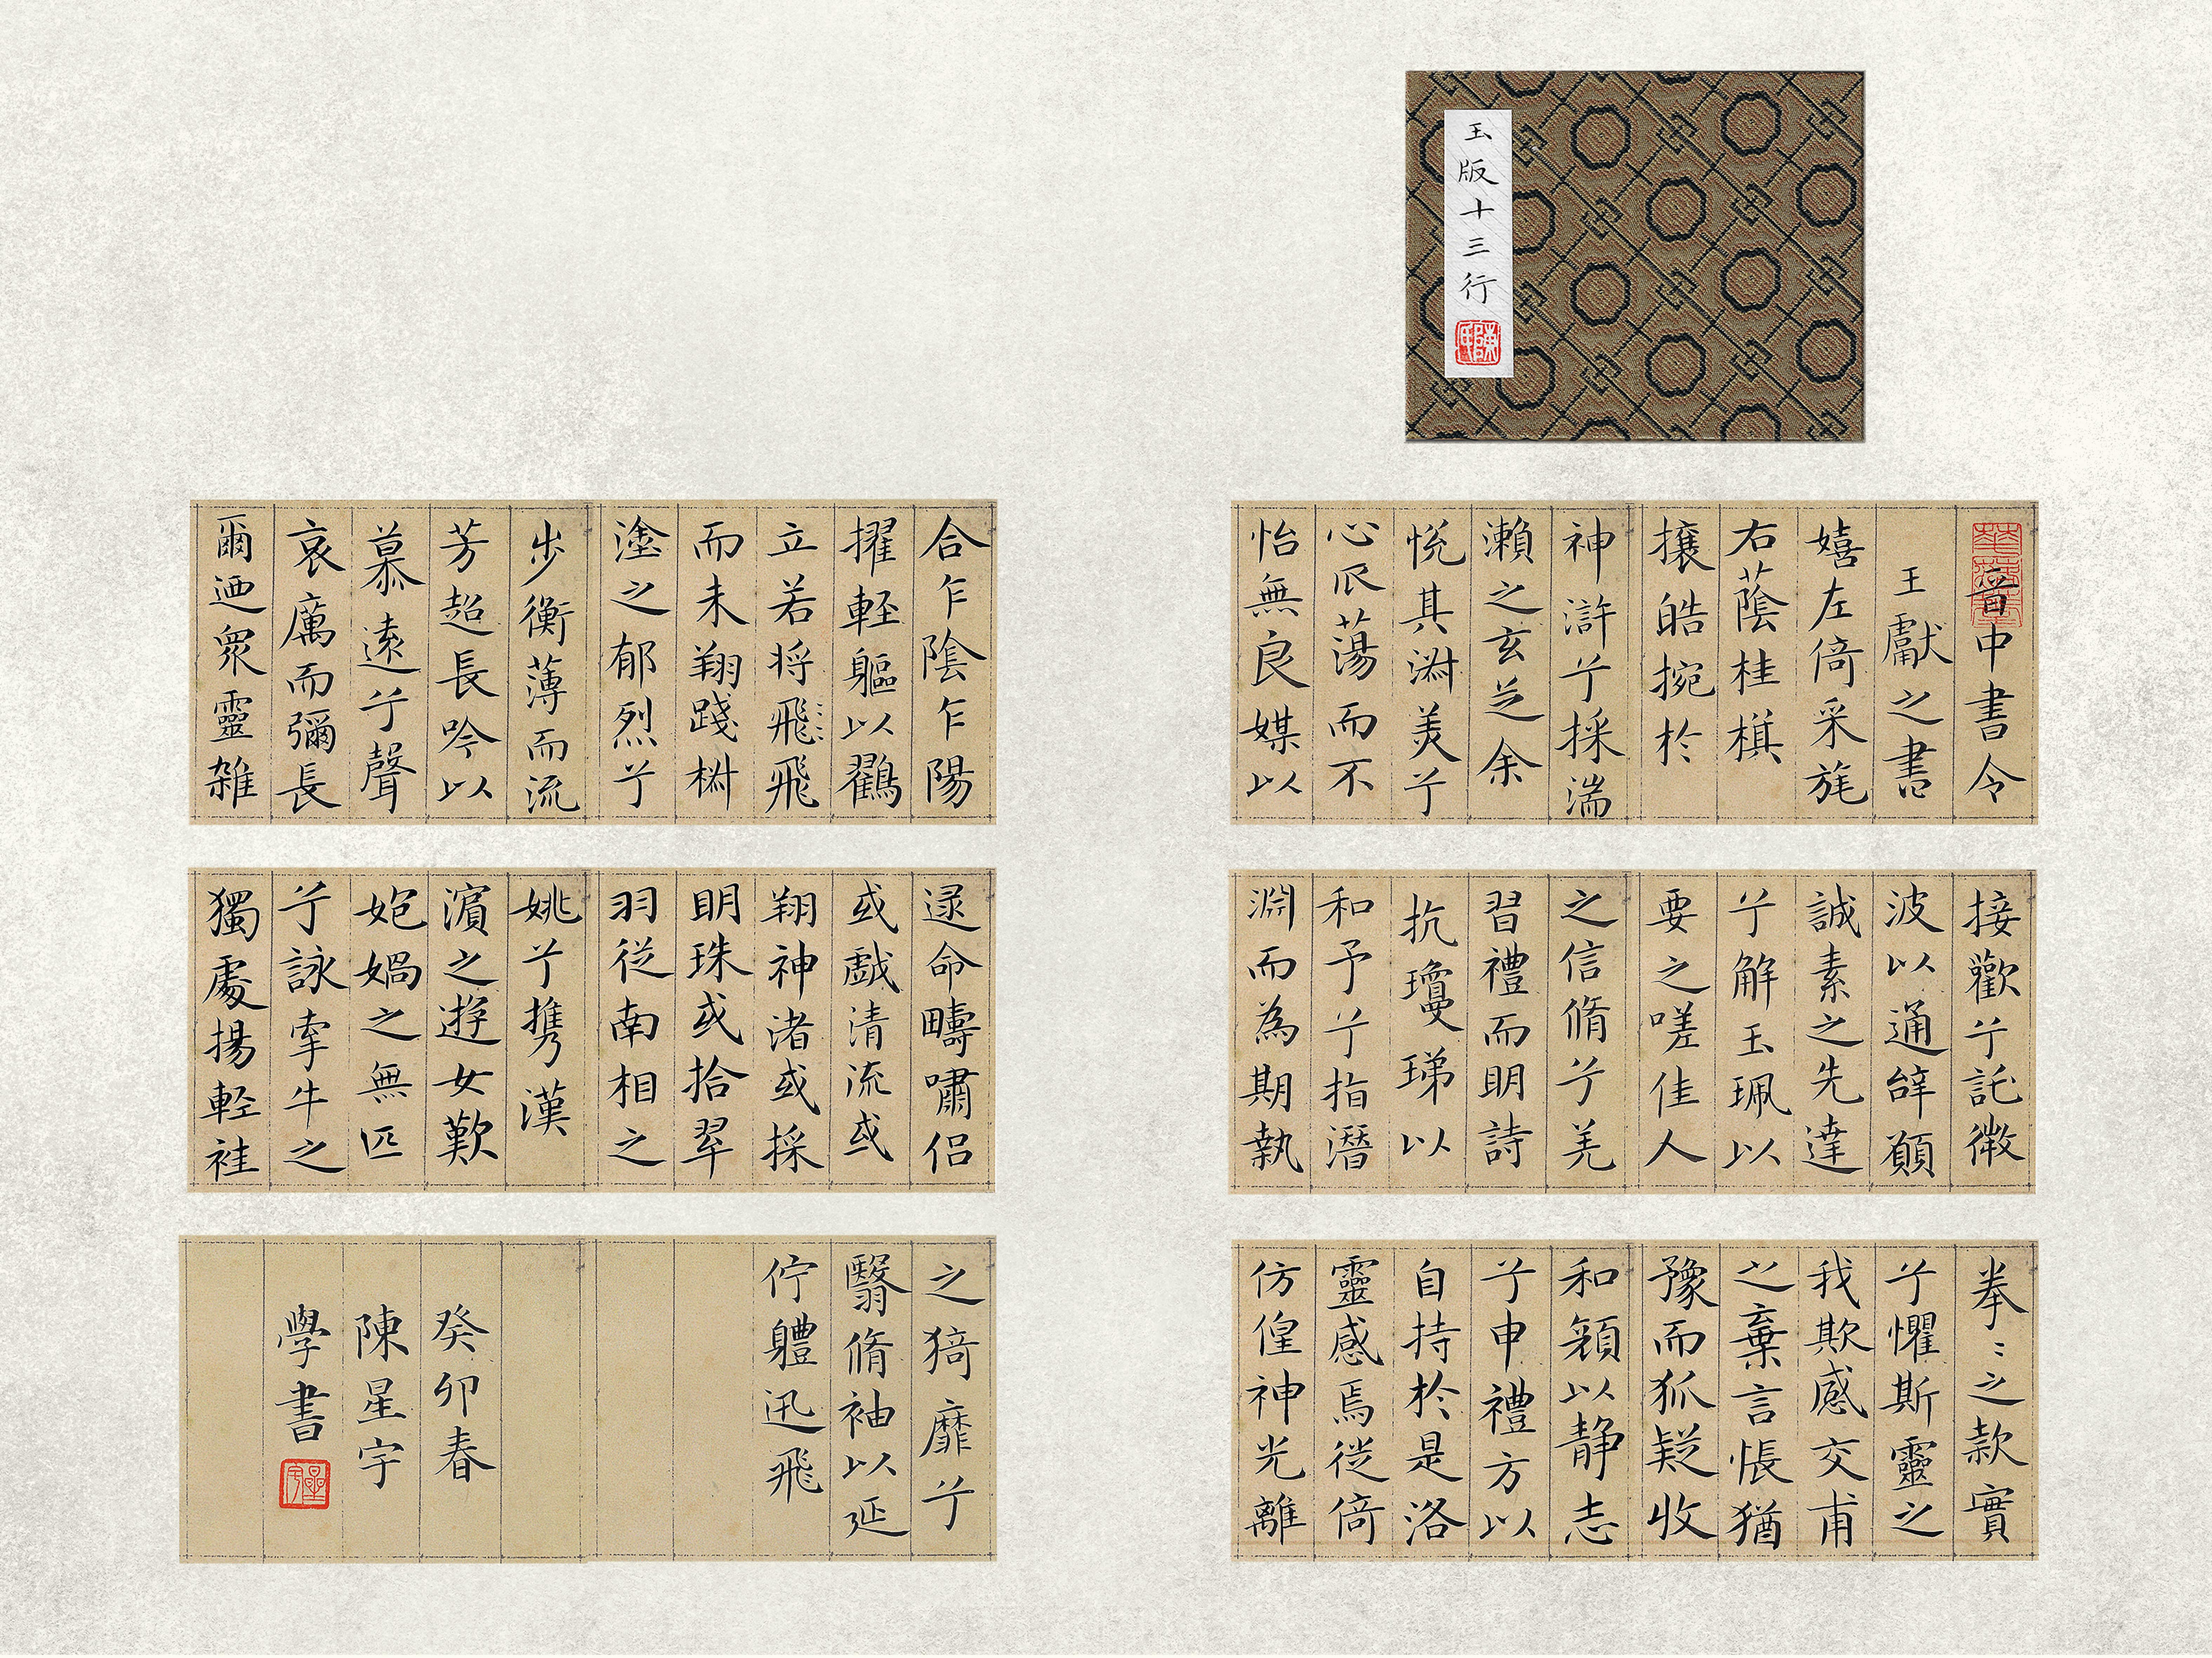 玉版十三行
晉中書令
王獻之書
嬉左倚采旄
右蔭桂棋
攘皓捥於
神滸兮採湍
瀨之玄芝余
悅其淋美兮
心㕟蕩而不
怡無良媒以
接歡兮託微
波以通辝願
誠素之先達
兮解玉珮以
要之嗟佳人
之信脩兮羌
習禮而明詩
抗瓊珶以
和予兮指潛
淵而為期執
拳〻之款實
兮懼斯靈之
我欺感交甫
之棄言悵猶
豫而狐疑收
和顏以静志
兮申禮方以
自持於是洛
靈感焉徙倚
仿偟神光離
合乍陰乍陽
擢軽軀以鸖
立若将飛飛
而未翔踐椒
塗之郁烈兮
步衡薄而流
芳超長吟以
慕遠兮聲
哀厲而彌長
爾迺衆靈雑
逯命疇嘯侣
或戱清流或
翔神渚或採
明珠或拾翠
羽從南相之
姚兮携漢
濵之遊女歎
媩媧之無匹
兮詠牽牛之
獨處揚軽袿
之猗靡兮
翳脩袖以延
佇軆迅飛
癸卯春
陳星宇
學書